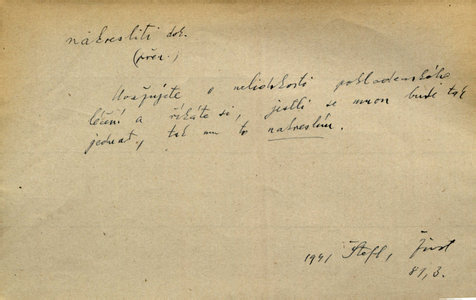 nakresliti dok.
(přen.)
Uvažujete o nelidskosti pokladenského
léčení a říkáte si, jestli se mnou bude tak
jednat, tak mu to nakreslím.
1941 Štefl, Život
81, 3.